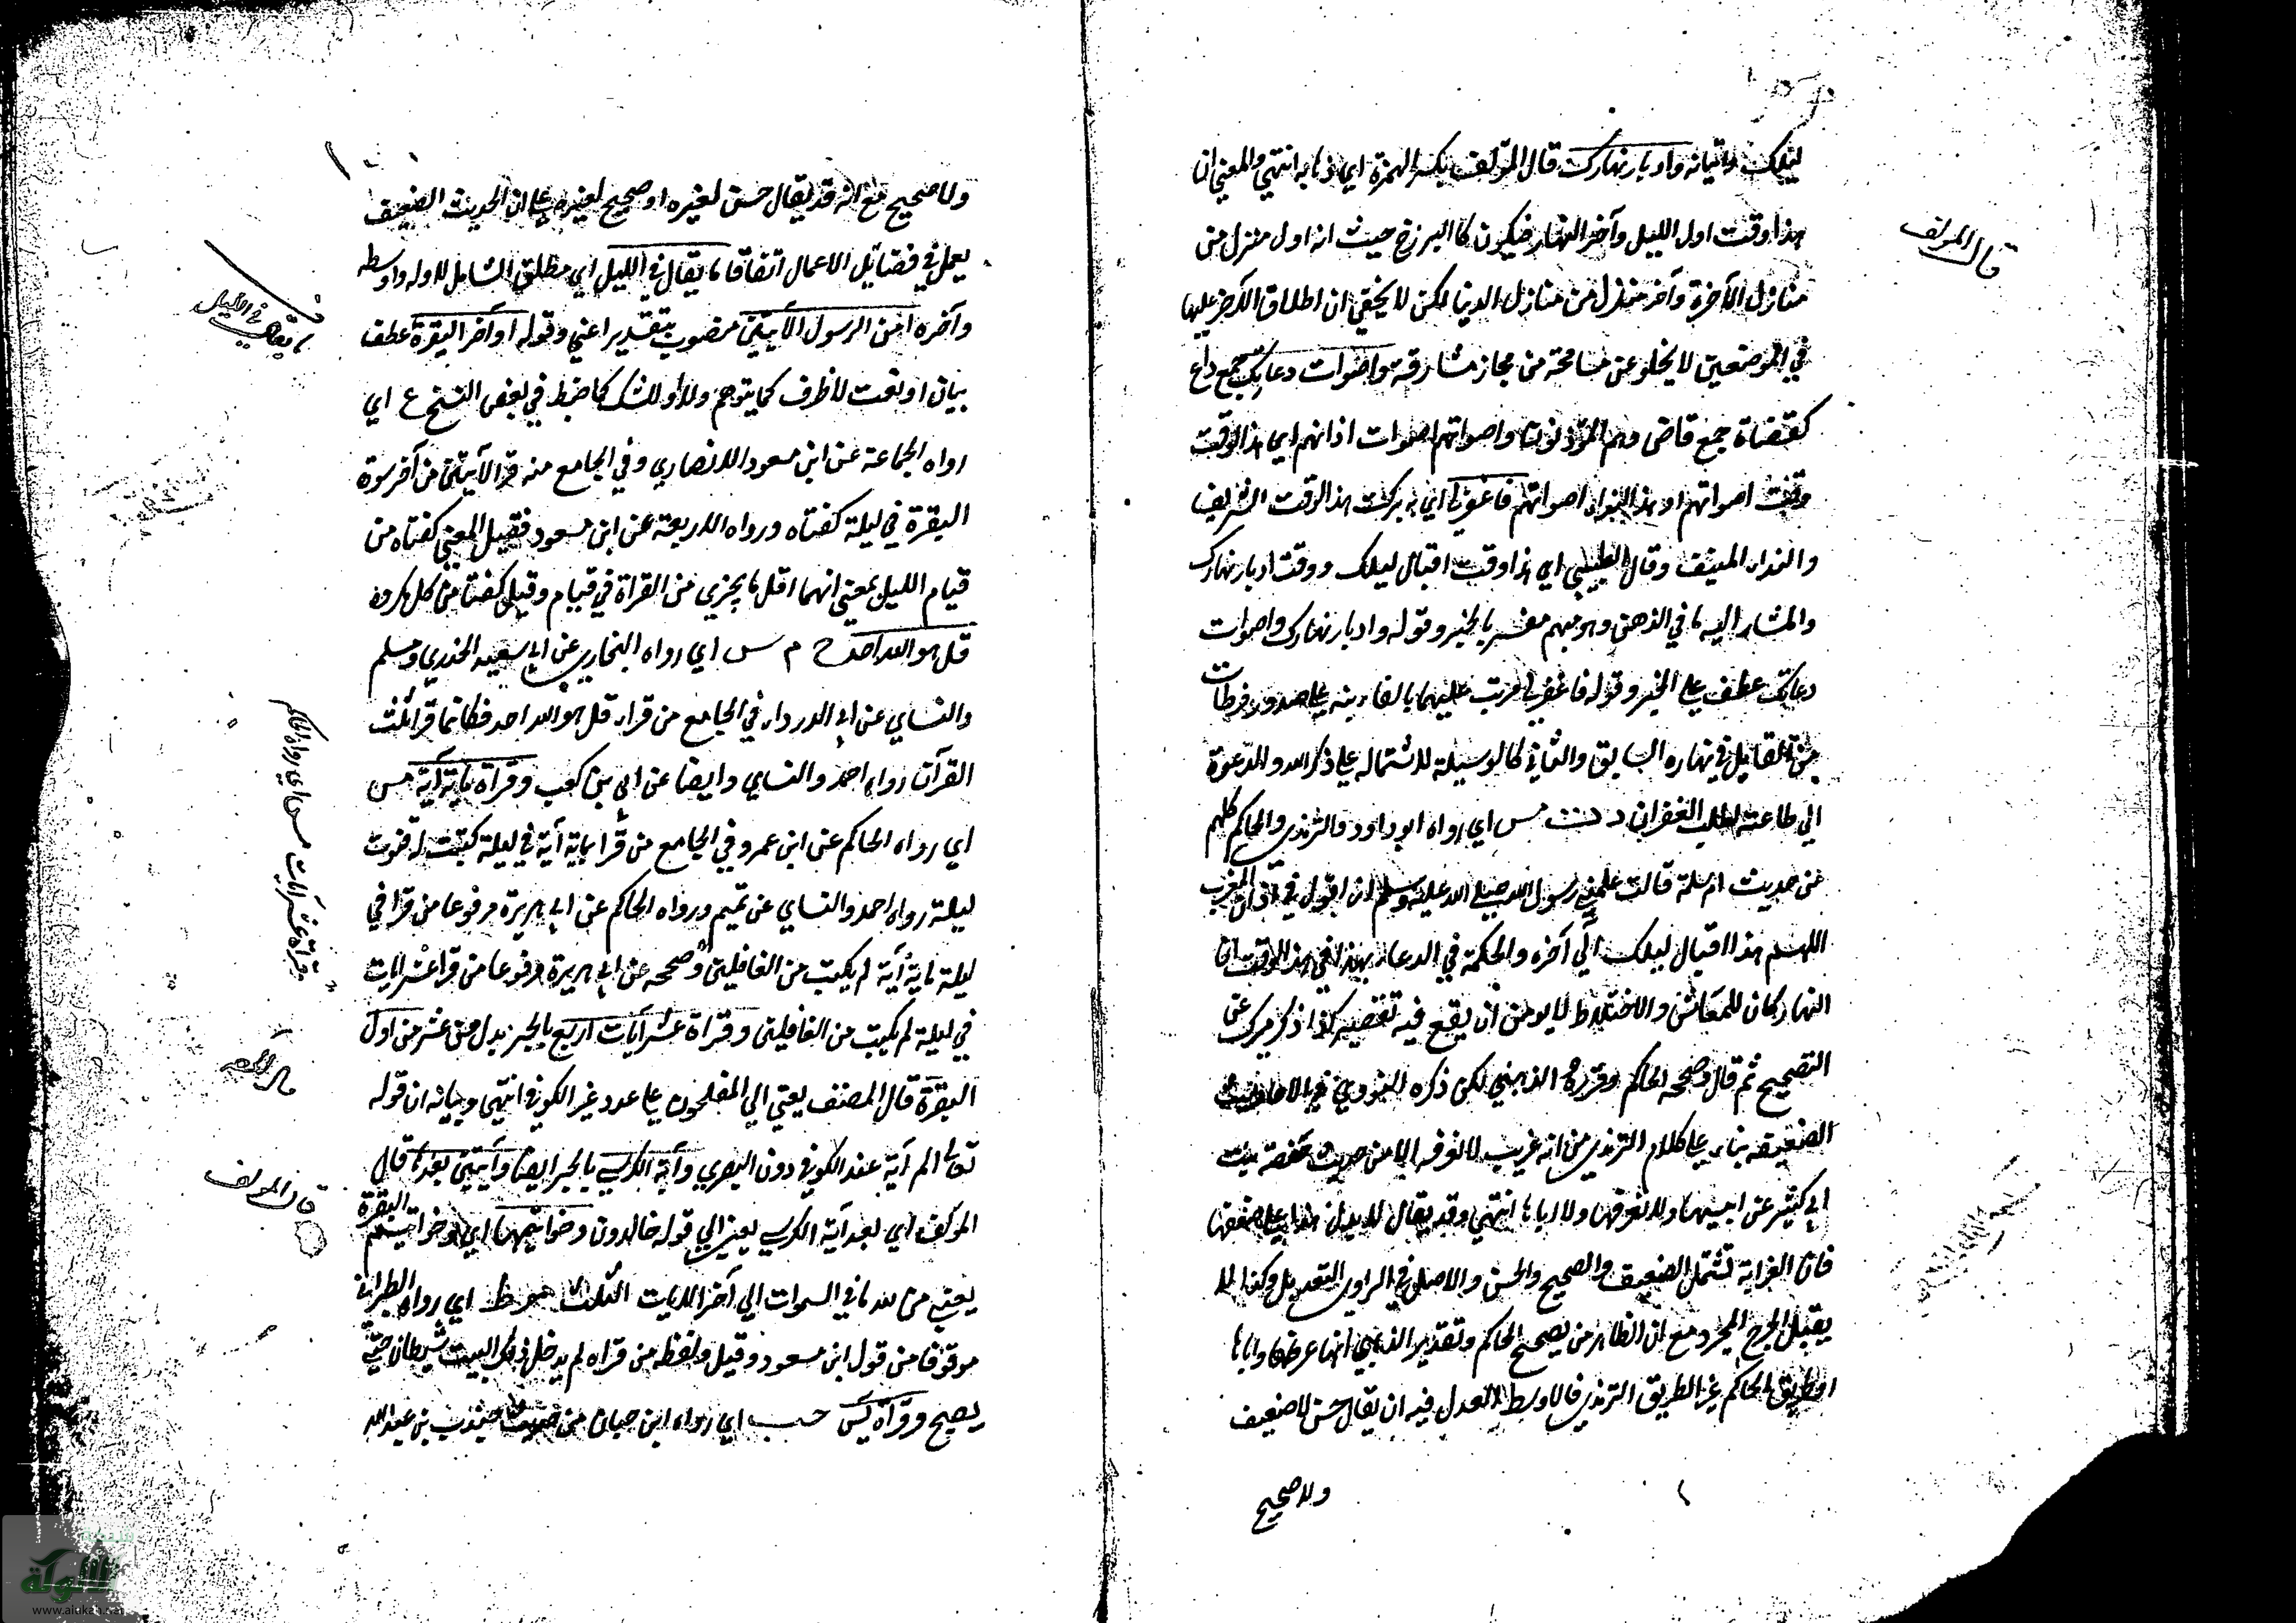 ليلك واتيانه وادبار نهارك قال المؤلف بكسر الهمزة اي ذهابه انتهي والمعني ان
هذا وقت اول الليل وآخر النهار فيكون كالبرزخ حيث انه اول منزل من
منازل الآخرة وآخر منزل من منازل الدنيا لكن لا يخفي ان اطلاق الآخر عليها
في الموضعين لا يخلو عن مسامحة من مجاز مشارفة واصوات دعاتك جمع داع
كقضاة جمع قاض وهم المؤذنون واصواتهم اصوات اذانهم اي هذا الوقت
وقت اصواتهم او هذا النداء اصواتهم فاغفر لي اي ببركت هذا الوقت الشريف
والنداء المنيف وقال الطيبي اي هذا وقت اقبال ليلك ووقت ادبار نهارك
والمشار اليه ما في الذهن وهو مبهم مفسر بالخبر وقوله وادبار نهارك واصوات
دعاتك عطف علي الخبر وقوله فاغفر لي مرتب عليهما بالفاء ينبه علي صدور فرطات
من القايل في نهاره السابق والثاني كالوسيلة لاشتماله علي ذكر الله والدعوة
الي طاعته لطلب الغفران د ت مس اي رواه ابو داود والترمذي والحاكم كلهم
من حديث ام سلمة قالت علمني رسول الله صلي الله عليه وسلم ان اقول في اذان المغرب
اللهم هذا اقبال ليلك الي آخره والحكمة في الدعاء بهذا في هذا الوقت ان
النهار كان للمعاش والاختلاط لا يومن ان يقع فيه تقصير كذا ذكر ميرك عن
التصحيح ثم قال وصححه الحاكم وقرره الذهبي لكن ذكره النووي في الاحاديث
الضعيفة بناء علي كلام الترمذي من انه غريب لا نعرفه الا من حديث حفصة بنت
ابي كثير عن ابيها ولا نعرفها ولا اباها انتهي وقد يقال لا يدل هذا علي ضعفها
فان الغرابة تشمل الضعيف والصحيح والحسن والاصل في الراوي التعديل وكذا لا
يقبل الجرح المجرد مع ان الظاهر من تصحيح الحاكم وتقرير الذهبي انهما عرفاها واباها
او طريق الحاكم غير الطريق الترمذي فالاوسط الاعدل فيه ان يقال حسن لا ضعيف
ولا صحيح
قال المولف
ولا صحيح مع انه قد يقال حسن لغيره او صحيح لغيره علي ان الحديث الضعيف
يعمل في فضائل الاعمال اتفاقا ما يقال في الليل اي مطلق الشامل لاوله واوسطه
وآخره امن الرسول الآيتين منصوب بتقدير اعني وقوله اواخر البقرة عطف
بيان او نعت لا ظرف كما يتوهم ولا او للشك كما ضبط في بعض النسخ ع اي
رواه الجماعة عن ابن مسعود الانصاري وفي الجامع من قرا الآيتين من آخر سورة
البقرة في ليلة كفتاه ورواه الاربعة عن ابن مسعود فقيل المعني كفتاه من
قيام الليل بمعني انهما اقل ما يجزي من القراة في قيام وقيل كفتا من كل مكروه
قل هو الله احد خ م س اي رواه البخاري عن ابي سعيد الخدري ومسلم
والنساي عن ابي الدرداء وفي الجامع من قراء قل هو الله احد فكانما قرا ثلث
القرآن رواه احمد والنساي وايضا عن ابي بن كعب وقراة ماية آية مس
اي رواه الحاكم عن ابن عمر وفي الجامع من قرا بماية آية في ليلة كتبت له قنوت
ليلة رواه احمد والنساي عن تميم ورواه الحاكم عن ابي هريرة مرفوعا من قرا في
ليلة ماية آية لم يكتب من الغافلين وصححه عن ابي هريرة مرفوعا من قرا عشر ايات
في ليلة لم يكتب من الغافلين وقراة عشر آيات اربع بالجر بدل من عشر من اول
البقرة قال المصنف يعني الي المفلحون علي عدد غير الكوفي انتهي وبيانه ان قوله
تعالي الم آية عند الكوفي دون البصري وآية الكرسي بالجر ايضا وآيتين بعدها قال
المولف اي بعد آية الكرسي يعني الي قوله خالدون وخواتيمها اي خواتيم البقرة
يعني من لله ما في السموات الي آخر الايات الثلث مو ط اي رواه الطبراني
موقوفا من قول ابن مسعود وقيل ولفظه من قراه لم يدخل ذلك البيت شيطان حتي
يصبح وقراة يس حب اي رواه ابن حبان من حديث جندب بن عبد الله
ما يقال في الليل
وقراة عشر آيات مس اي رواه الحاكم
قال المولف
الألوكة
www.alukah.net